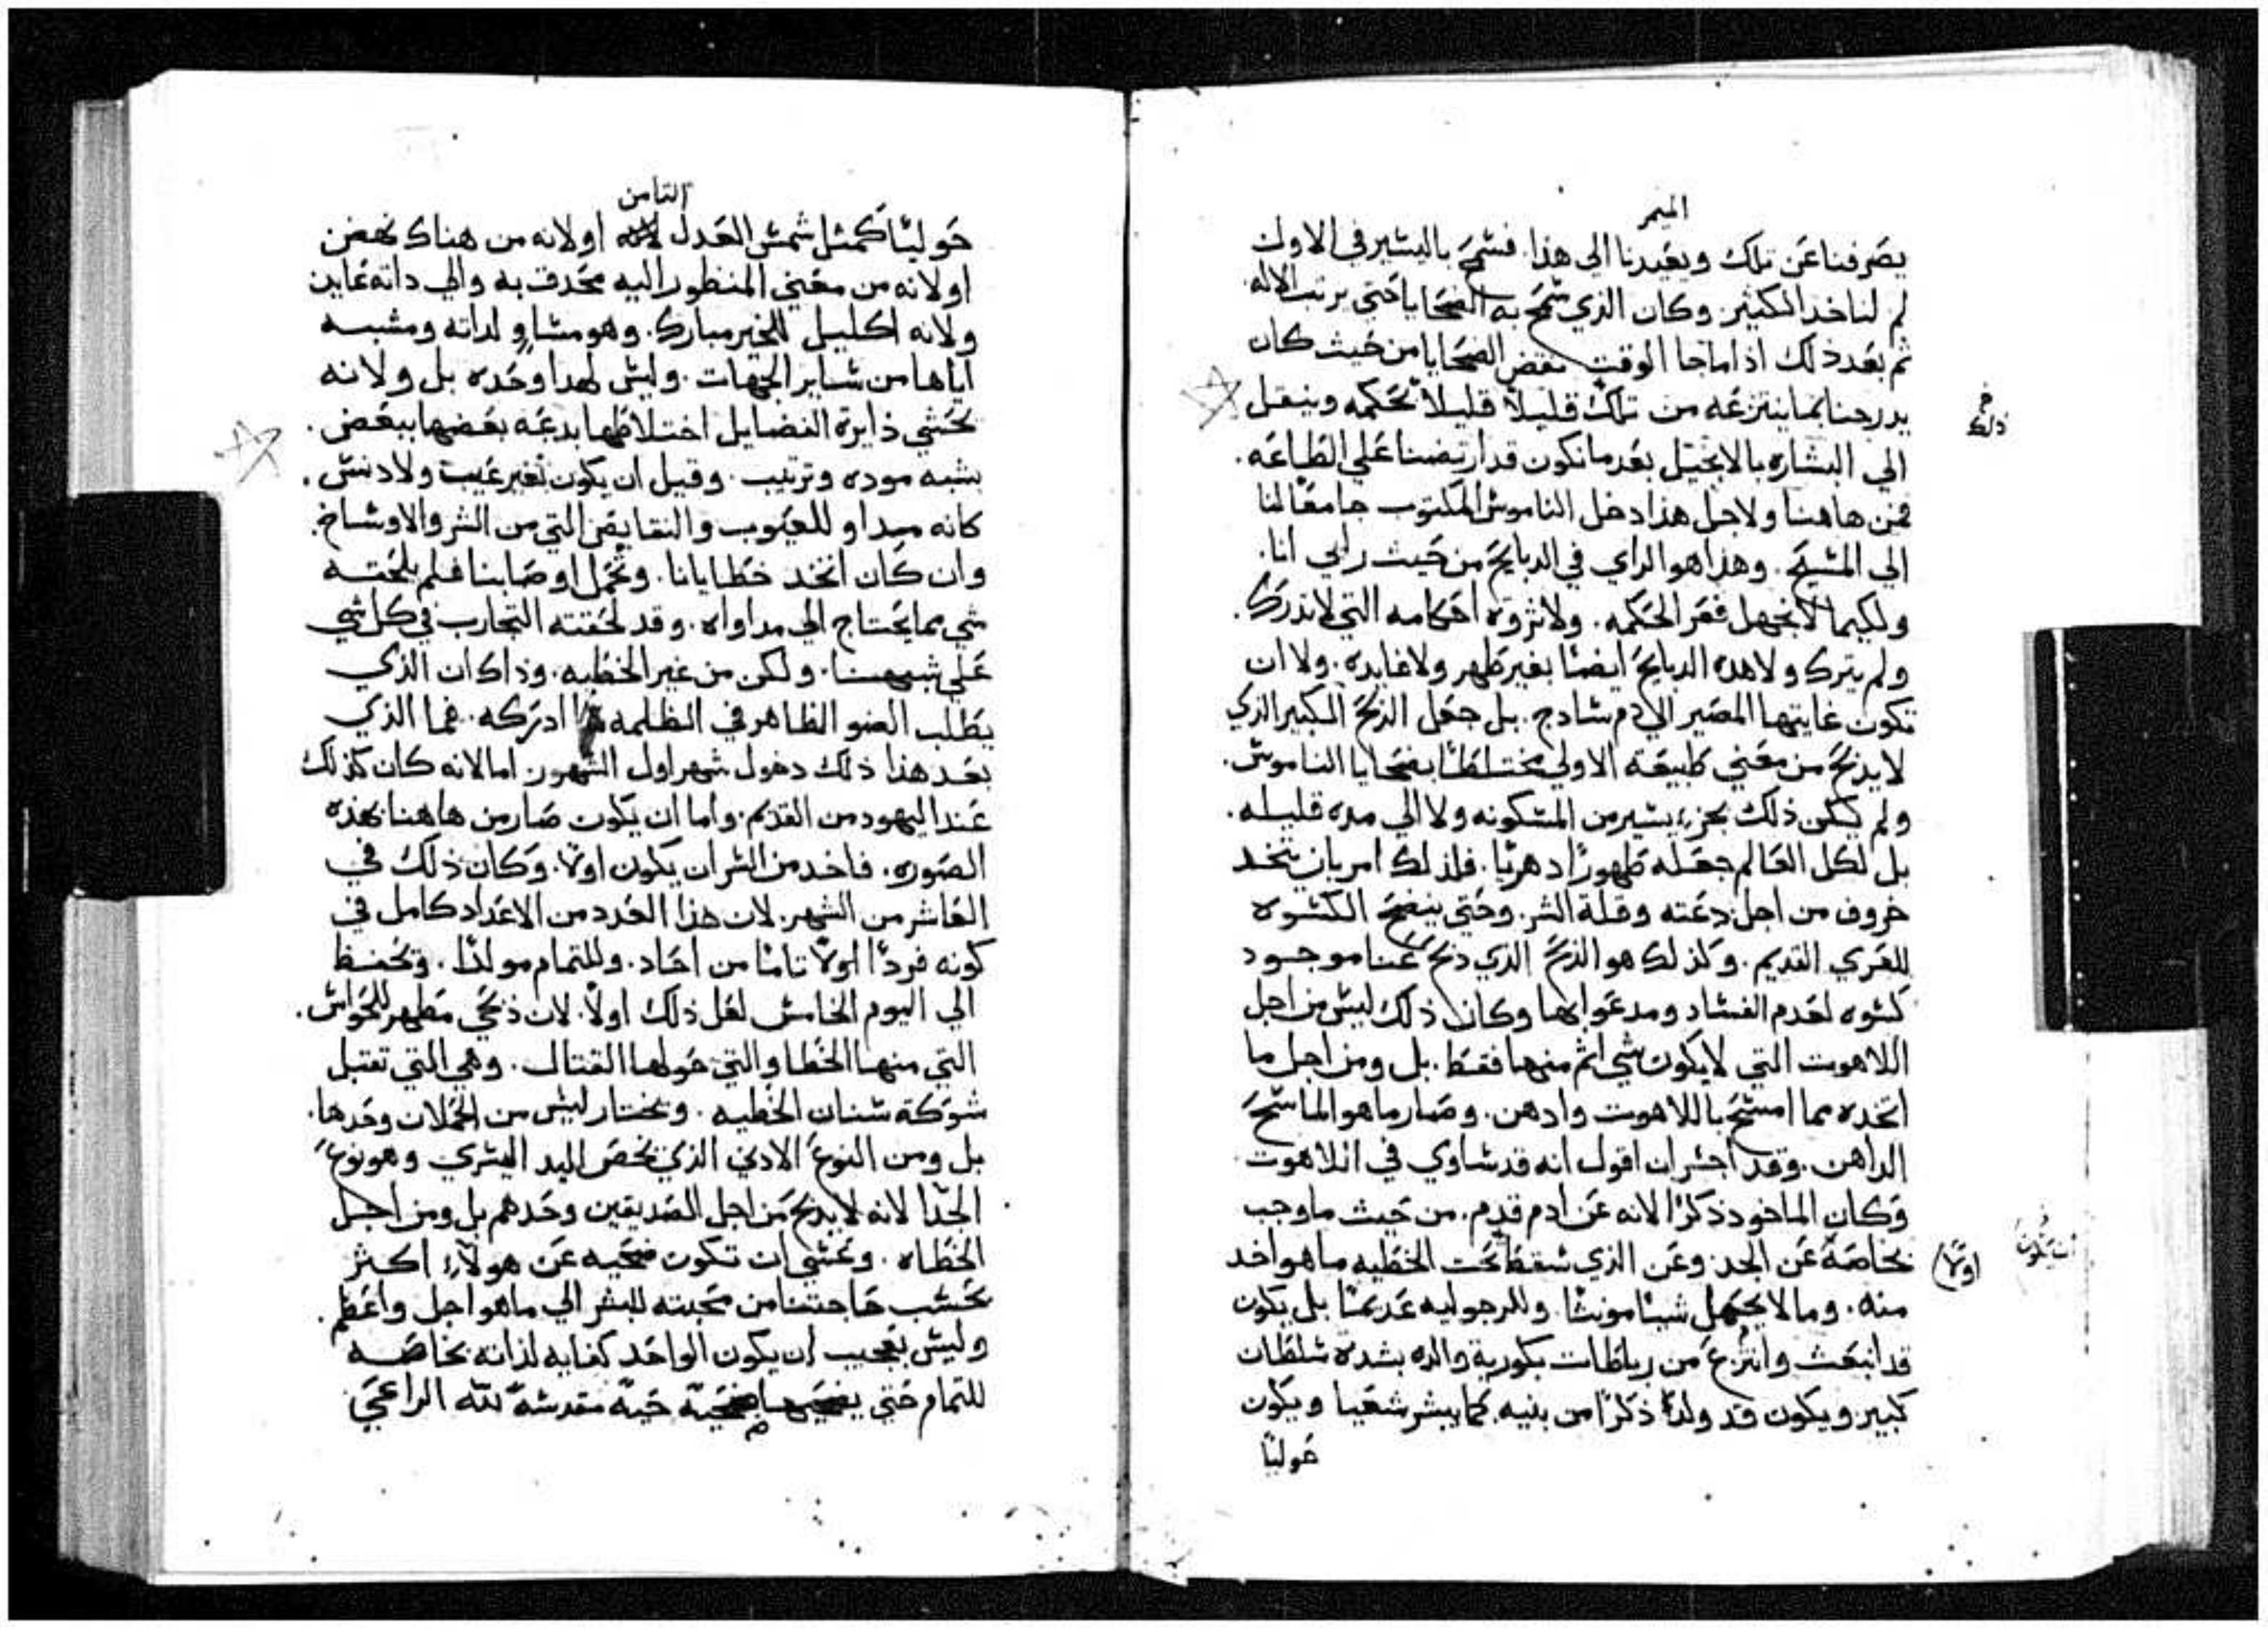 الميمر
يصرفنا عن تلك ويعيدنا الى هذا. فسمح باليسير في الاول
لم لناخد الكثير. وكان الذي سمح به الضحايا حتي يرتب الاله.
ثم بعد ذلك اذا ماجا الوقت نقض الضحايا من حيث كان
يدرجنا بما ينتزعه من تلك قليلاً قليلاً بحكمه وينقل
ذلك
الي البشاره بالانجيل بعد ما نكون قد ارتضنا علي الطاعه.
فمن هاهنا ولاجل هذا دخل الناموس المكتوب جامعًا لنا
الي المسيح. وهذا هو الراي في الدبايح من حيث رايي انا.
ولكيما لا نجهل قعر الحكمه. ولا ثروة احكامه التي لا تدرك.
ولم يترك ولا هده الدبايح ايضًا بغير طهر ولا فايده. ولا ان
تكون غايتها المصير الي دم سادج. بل جعل الذبح الكبير الذي
لا يدبح من معني طبيعته الاولي مختلطًا بضحايا الناموس.
ولم يكن ذلك بجزء يسير من المسكونه ولا الي مده قليله.
بل لكل العالم جعله طهورًا دهريًا. فلذلك امر بان يتخد
خروف من اجل دعته وقلة الشر. وحتى ينضح الكسوه
للعري القديم. وكذلك هو الذبح الذي ذبح عنا موجود
كسوه لعدم الفساد ومدعوا بها وكان ذلك ليس من اجل
اللاهوت التي لا يكون شي اتم منها فقط. بل ومن اجل ما
اتخده مما امسح باللاهوت وادهن. وصار ما هو الماسح
الداهن. وقد اجسر ان اقول انه قد ساوي في اللاهوت
وكان الماخود ذكرًا لانه عن ادم قدم. من حيث ما وجب
بخاصة عن الجد. وعن الذي سقط تحت الخطيه ما هو اخد
اولاً
ان يكون
منه. وما لا يحتمل شيئًا مونثًا. وللرجوليه عديمًا بل يكون
قد انبعث وانتزع من رباطات بكورية والده بشدة سلطان
كبير. ويكون قد ولد ذكرًا من بنيه. كما يبشر شعيا ويكون
حوليًا
التامن
حوليًا كمثل شمس العدل او لانه من هناك نهض
او لانه من معني المنظور اليه محدق به والي داته عاين
ولانه اكليل للخير مبارك. وهو مساوٍ لداته ومشبه
اياها من ساير الجهات. وليس لهدا وحده بل ولانه
يحشي ذايرة الفضايل اختلاطها بدعه بعضها ببعض.
بشبه موده وترتيب. وقيل ان يكون بغير عيب ولا دنس.
كانه مبداو للعيوب والنقايص التي من الشر والاوساخ.
وان كان اتخد خطايانا. وتحمل اوصابنا فلم يلحقه
شي مما يحتاج الي مداواه. وقد لحقته التجارب في كل شي
علي شبهنا. ولكن من غير الخطيه. وذاك ان الذي
يطلب الضو الظاهر في الظلمه ادركه. فما الذي
بعد هذا ذلك دخول شهر اول الشهور. اما لانه كان كذلك
عند اليهود من القديم. واما ان يكون صار من هاهنا بهذه
الصوره. فاخد من الشر ان يكون اولاً. وكان ذلك في
العاشر من الشهر. لان هذا العدد من الاعداد كامل في
كونه فردًا اولاً تامًا من احاد. وللتمام مولدًا. وتحفظ
الي اليوم الخامس لعل ذلك اولاً. لان ذبحي مطهر للحواس.
التي منها الخطا والتي حولها القتال. وهي التي تقتبل
شوكة سنان الخطيه. وتختار ليس من الحملان وحدها.
بل ومن النوع الادني الذي يخص اليد اليسري وهو نوع
الجدا لانه لا يدبح من اجل الصديقين وحدهم بل ومن اجل
الخطاه. وعسي ان تكون ضحيه عن هولاء اكثر
بحسب حاجتنا من محبته للبشر الي ما هو اجل واعظم.
وليس بعجيب ان يكون الواحد كفايه لذاته بخاصه
للتمام حتي يضحيها ضحيّة حيّة مقدسة للّه الراعي